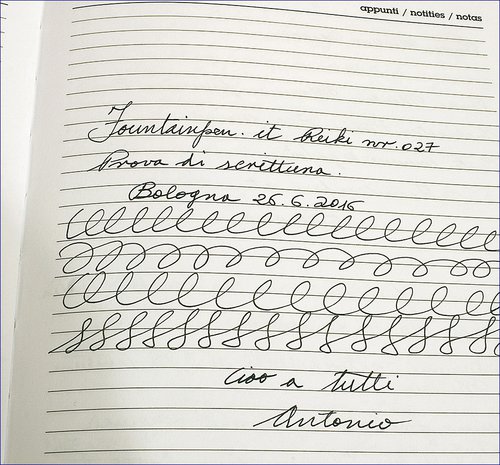 appunti / notities / notas
Fountainpen.it Reiki nr. 027
Prova di scrittura.
Bologna 26.6.2016
Ciao a tutti
Antonio